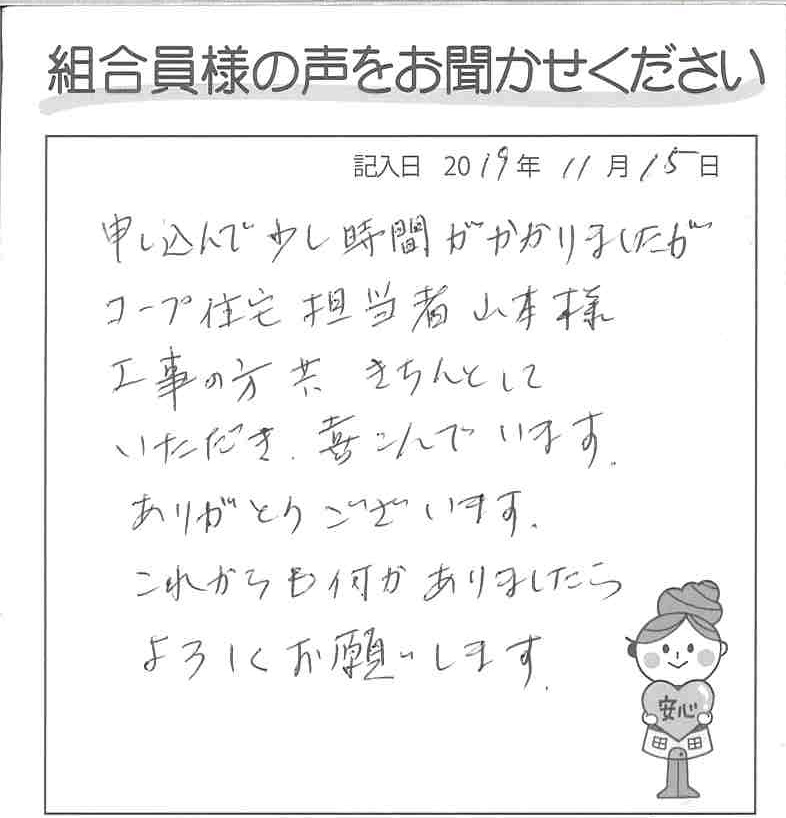 組合員様の声をお聞かせください
記入日 2019年 11月 15日
申し込んで少し時間がかかりましたが
コープ住宅 担当者 山本様
工事の方共 きちんとして
いただき、喜こんでいます。
ありがとうございます。
これからも何かありましたら
よろしくお願いします。
安心